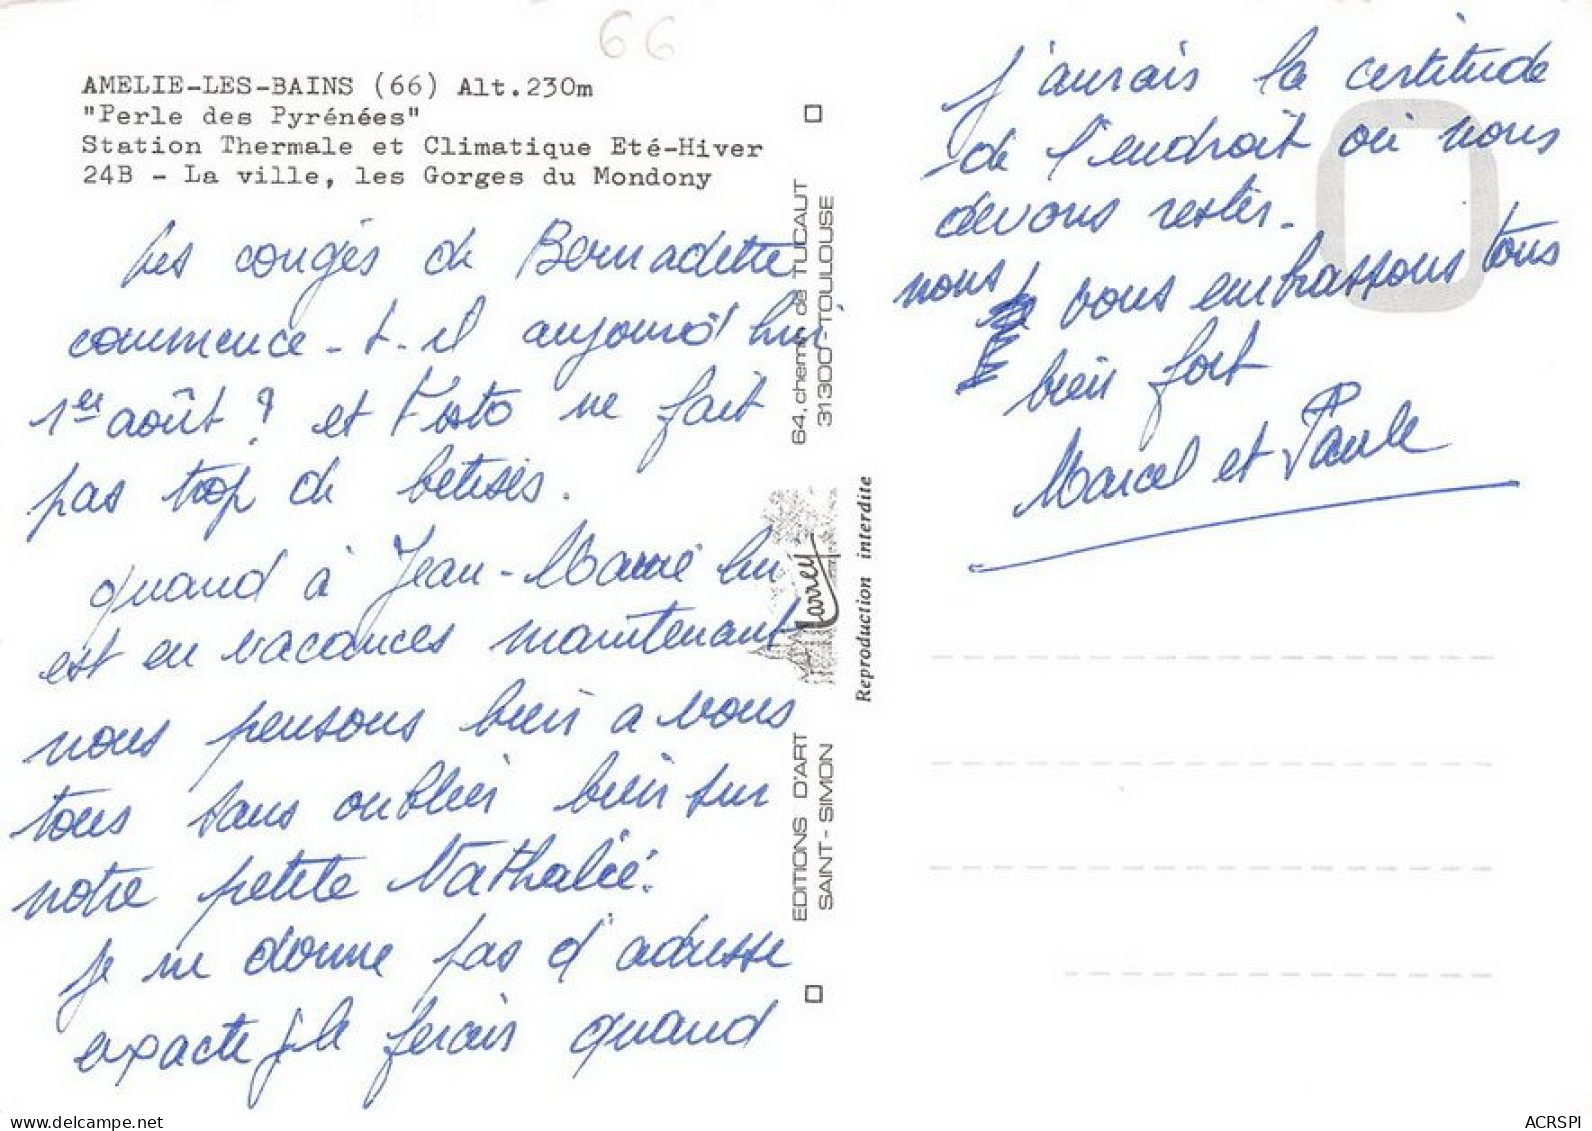 66
AMELIE-LES-BAINS (66) Alt.230m
"Perle des Pyrénées"
Station Thermale et Climatique Eté-Hiver
24B - La ville, les Gorges du Mondony
Les congés de Bernadette
commence-t-il aujourd'hui
1er août ? et Tosto ne fait
pas trop de betises.
quand à Jean-Marie lui
est en vacances maintenant
nous pensons bien a vous
tous sans oublier bien sur
notre petite Nathalie.
je ne donne pas d'adresse
exacte je le ferais quand
j'aurais la certitude
de l'endroit où nous
devons rester.
nous vous embrassons tous
bien fort
Marcel et Paule
64, chemin de TUCAUT
31300 - TOULOUSE
Larrey
Reproduction interdite
EDITIONS D'ART
SAINT-SIMON
delcampe.net
ACRSPI